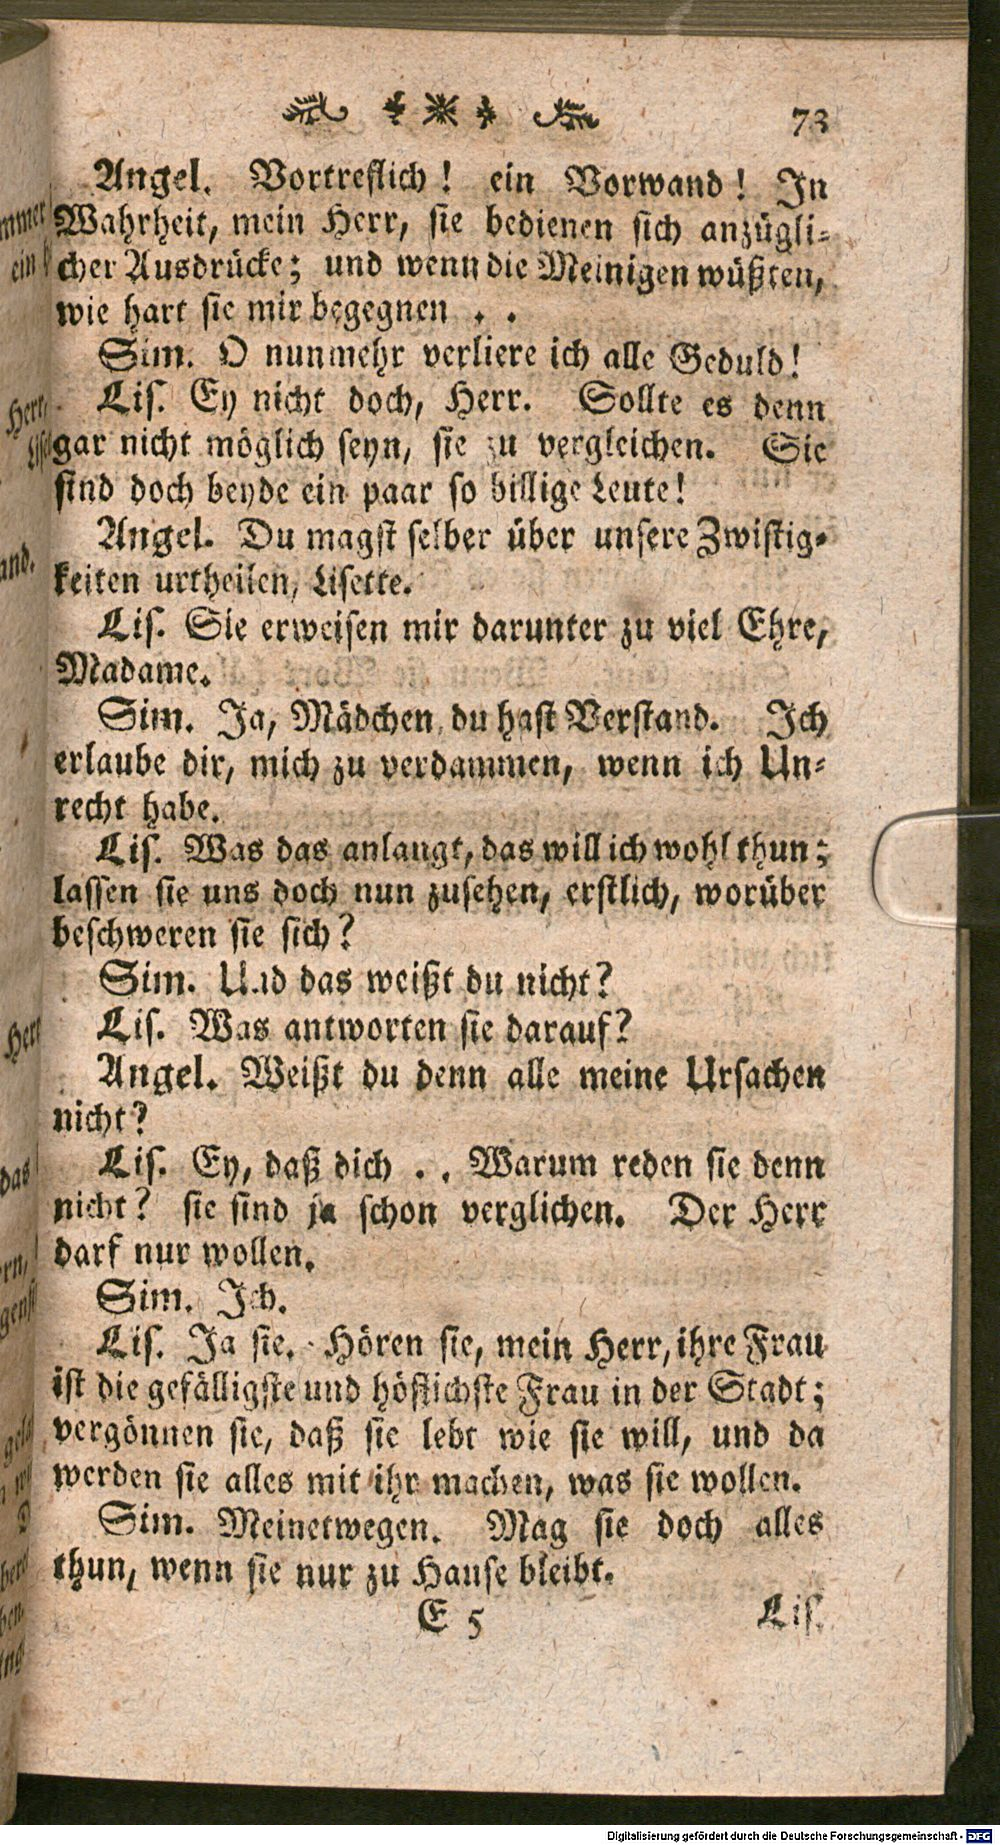 73
Angel. Vortreflich! ein Vorwand! In
Wahrheit, mein Herr, sie bedienen sich anzügli-
cher Ausdrücke; und wenn die Meinigen wüßten,
wie hart sie mir begegnen . .
Sim. O nunmehr verliere ich alle Geduld!
Lis. Ey nicht doch, Herr. Sollte es denn
gar nicht möglich seyn, sie zu vergleichen. Sie
sind doch beyde ein paar so billige Leute!
Angel. Du magst selber über unsere Zwistig-
keiten urtheilen, Lisette.
Lis. Sie erweisen mir darunter zu viel Ehre,
Madame.
Sim. Ja, Mädchen, du hast Verstand. Ich
erlaube dir, mich zu verdammen, wenn ich Un-
recht habe.
Lis. Was das anlangt, das will ich wohl thun;
lassen sie uns doch nun zusehen, erstlich, worüber
beschweren sie sich?
Sim. Und das weißt du nicht?
Lis. Was antworten sie darauf?
Angel. Weißt du denn alle meine Ursachen
nicht?
Lis. Ey, daß dich . . Warum reden sie denn
nicht? sie sind ja schon verglichen. Der Herr
darf nur wollen.
Sim. Ich.
Lis. Ja sie. Hören sie, mein Herr, ihre Frau
ist die gefälligste und höflichste Frau in der Stadt;
vergönnen sie, daß sie lebt wie sie will, und da
werden sie alles mit ihr machen, was sie wollen.
Sim. Meinetwegen. Mag sie doch alles
thun, wenn sie nur zu Hause bleibt.
E 5 Lis.
Digitalisierung gefördert durch die Deutsche Forschungsgemeinschaft - DFG